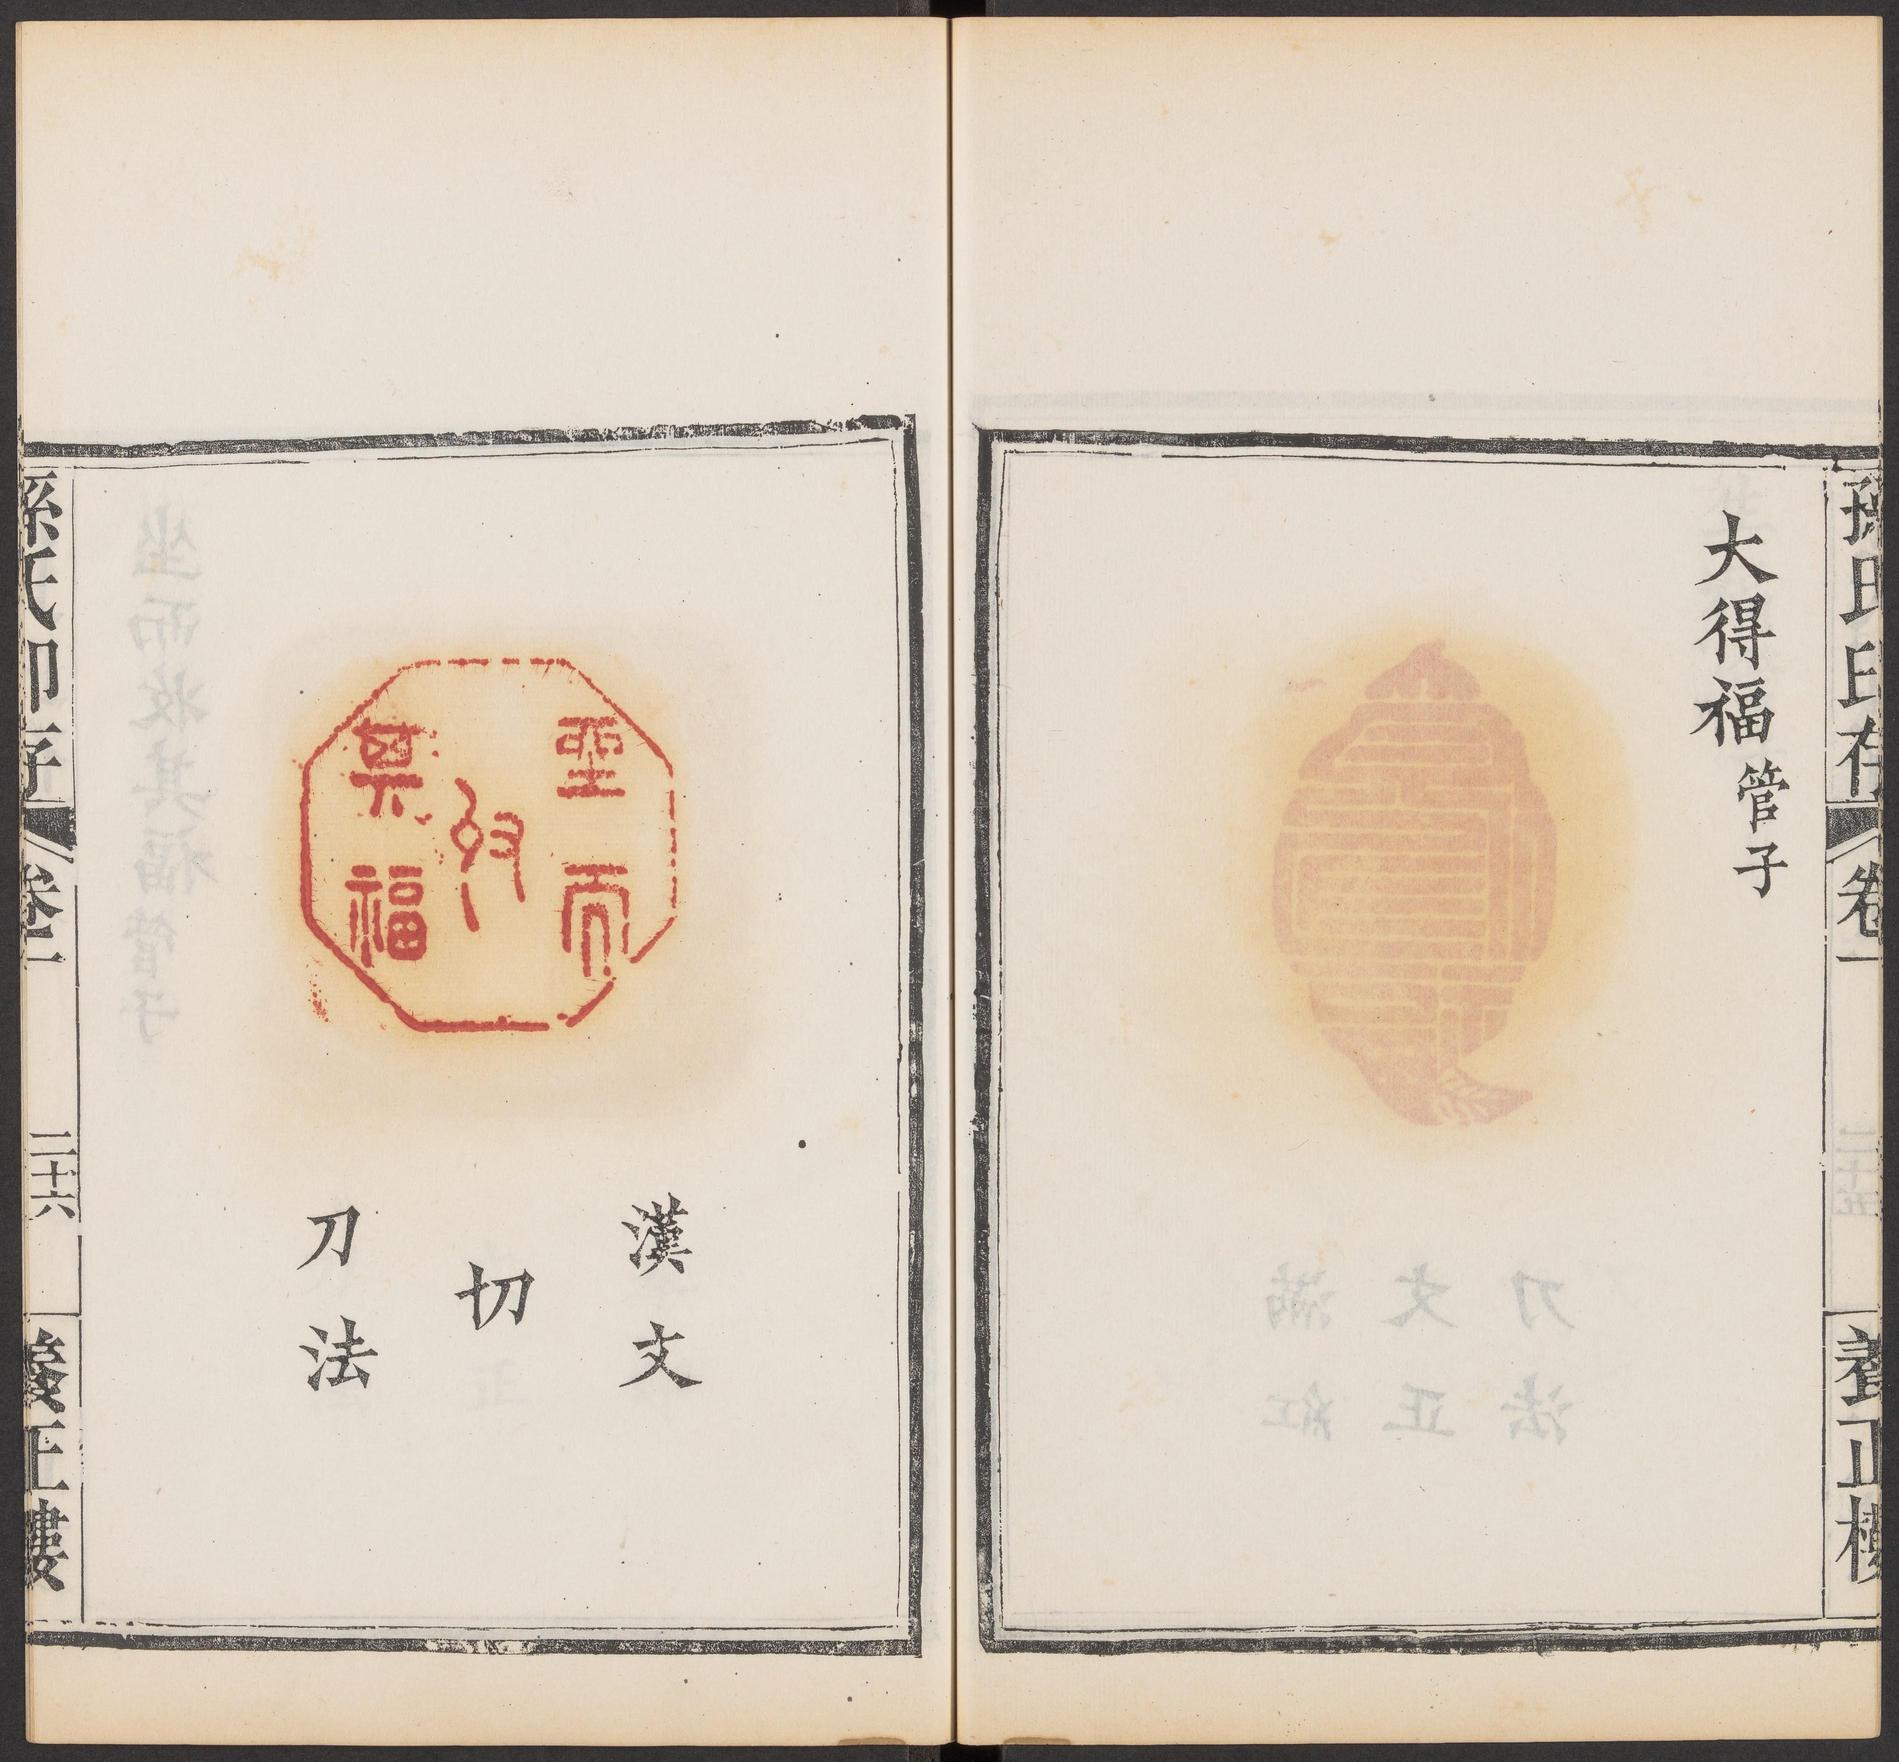 孫氏印存
卷一
養正樓
大得福 管子
坐而
收
其福
漢文
切
刀法
孫氏印存
卷一
二十六
養正樓